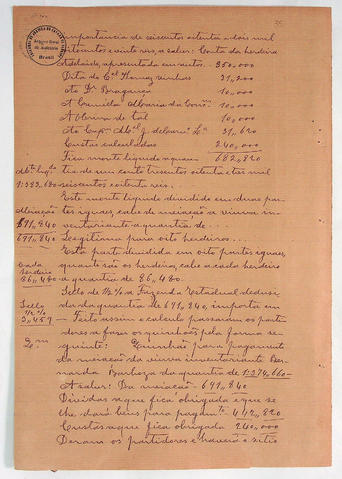 importancia de seiscentos oitenta e dois mil
oitocentos e vinte reis, a saber: Conta da herdeira
Adelaide, apresentada em autos. 350,000
Dita do Cel Thomaz Vinhas 31,200
Ao Dr Bragança 10,000
A Camida Maria da 10,000
A Viuva de tal 10,000
Ao Capm 31,620
Custas calculadas 240,000
Fica monte liquido a quan- 682,820
tia de um conto tresentos oitenta e tres mil
seiscentos e oitenta reis.
Mte liqdo
1:383,680
Este monte liquido dividido em duas par-
tes iguaes, cabe de meiação a viuva in-
ventariante a quantia de ...
Meiação
691,840
691,840
Legitima para oito herdeiros ...
Esta parte dividida em oito partes iguaes,
quantos são os herdeiros, cabe a cada herdeiro
a quantia de 86,480.
Cada
herdeiro
86,480
Sello de 1/2 % a Fazenda Estadual dedusi-
da da quantia de 691,840, importa em
Sello
1/2 %
3,459
— Feito assim o calculo passaram os parti-
dores a faser os quinhões pela forma se-
guinte: Quinhão para pagamento
da meiação da viuva inventariante Ber-
narda Barboza da quantia de 1:374,660—
A saber: Da meiação— 691,840
Dividas a que fica obrigada e que se
lhe dará bens para pagamto 442,820
Custas a que fica obrigada 240,000
Deram os partidores e haverá o sitio
Archivo Geral
Brasil